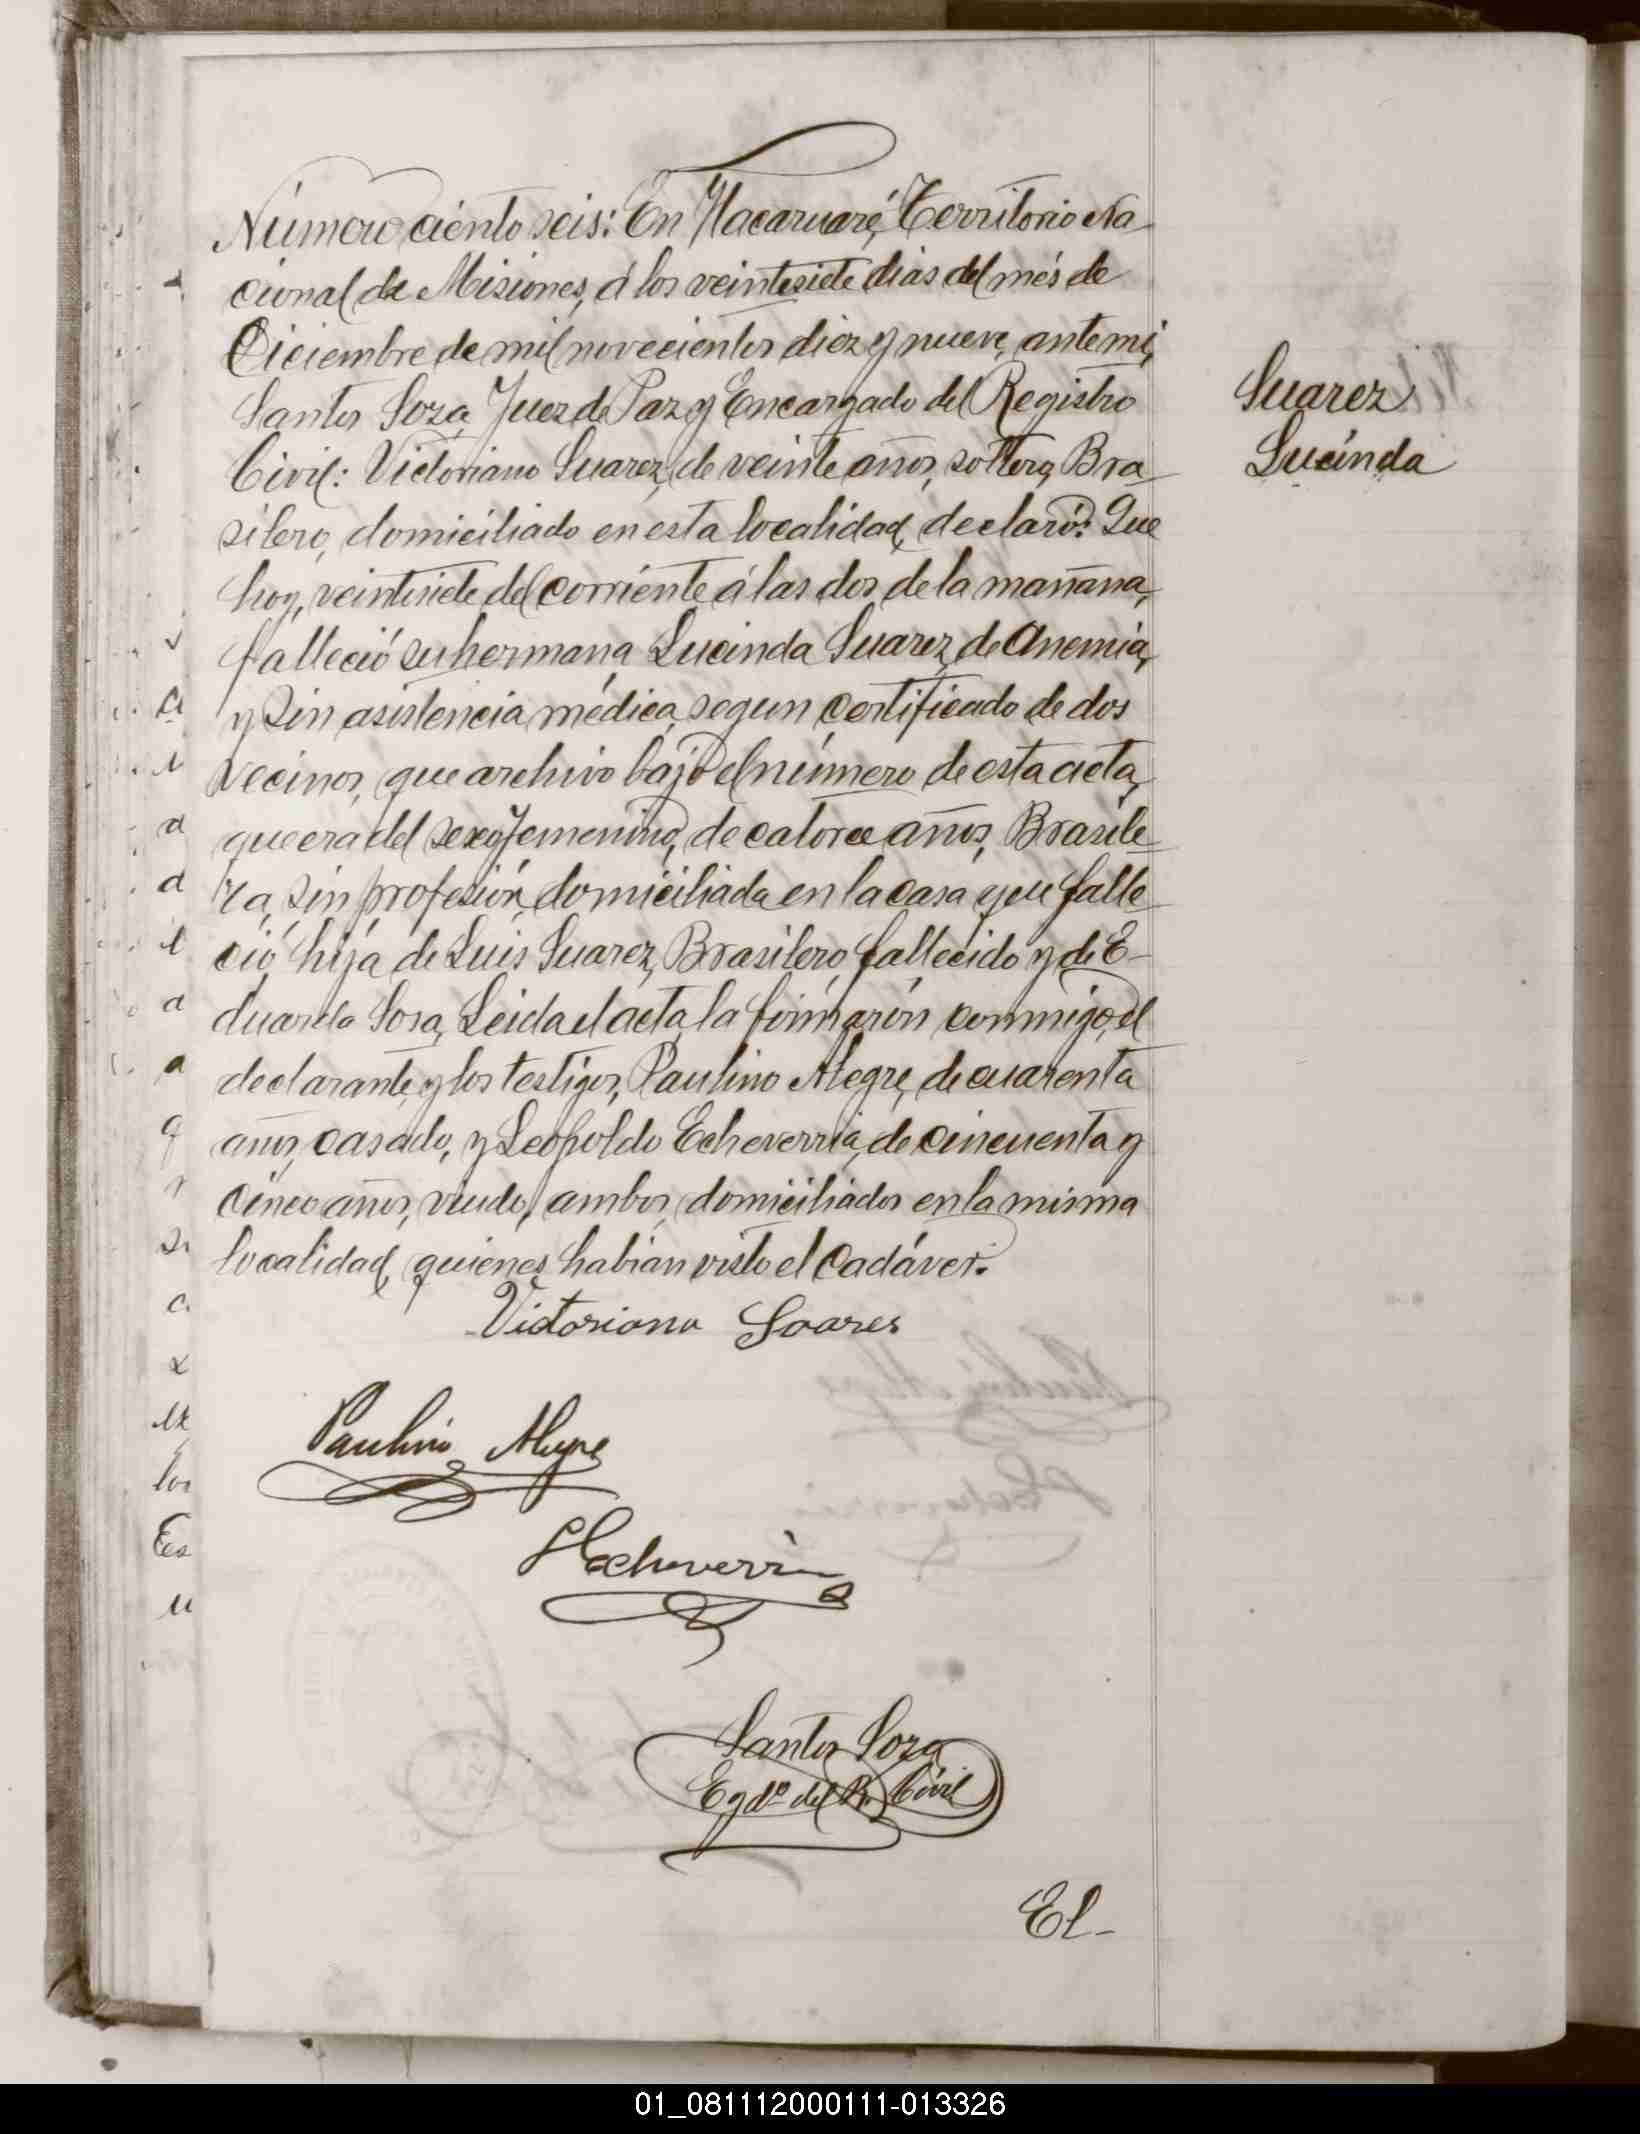 Número ciento seis: En Itacaruaré, Territorio Na-
cional de Misiones, á los veintesiete dias del més de
Diciembre de mil novecientos diez y nueve, ante mi,
Santos Soza, Juez de Paz y Encargado del Registro
Civil: Victoriano Suarez, de veinte años, soltero, Bra-
silero, domiciliado en esta localidad, declaró: Que
hoy, veintisiete del corriente á las dos de la mañana,
falleció su hermana Lucinda Suarez, de Anemia,
y sin asistencia médica, segun certificado de dos
vecinos, que archivo bajo el número de esta acta,
que era del sexo femenino, de catorce años, Brasile-
ra, sin profesión, domiciliada en la casa que falle-
ció hija de Luis Suarez, Brasilero, fallecido y de E-
duarda Sosa, Leida el acta, la firmarón conmigo, el
declarante, y los testigos, Paulino Alegre, de cuarenta
años, casado, y Leopoldo Echeverria, de cincuenta y
cinco años, viudo, ambos domiciliados en la misma
localidad, quienes habian visto el cadáver.
Suarez
Lucinda
Victoriano Soares
Paulino Alegre
LEcheverria
Santos Soza
Egdo del R. Civil
El-
01_081112000111-013326